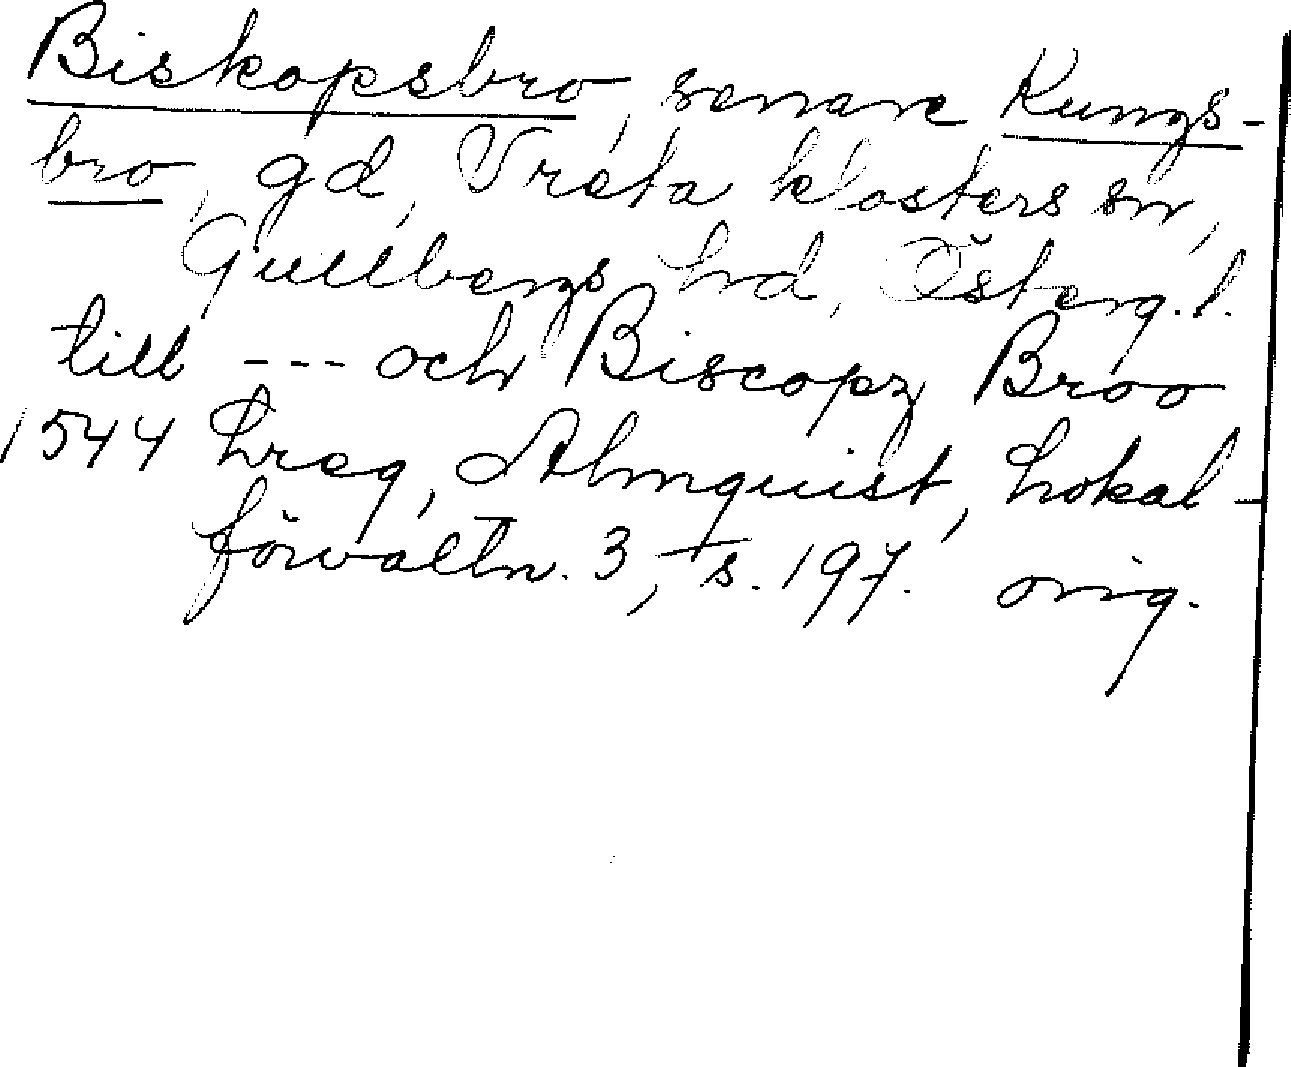 Biskopsbro, senare Kungs-
bro, gd, Vreta klosters sn,
Gullbergs hd, Österg.l.
till --- och Biscopz Broo
1544 Lreg, Almquist, Lokal-
förvaltn. 3, s. 197. orig.